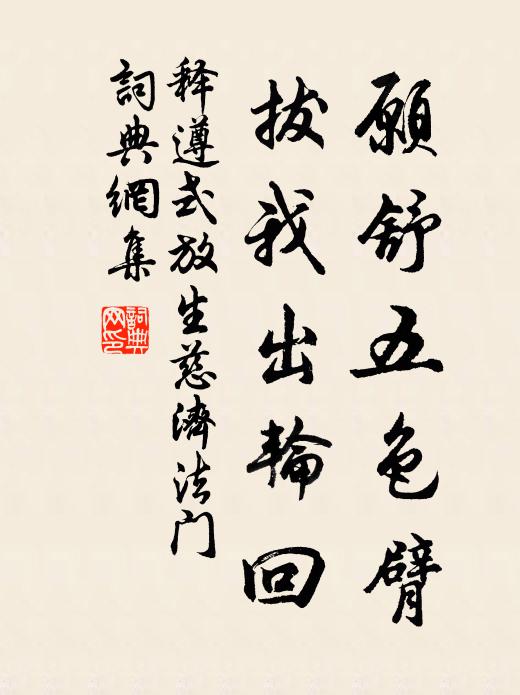 願舒五色臂
拔我出輪回
释遵式放生慈濟法门
詞典網集
詞典网印